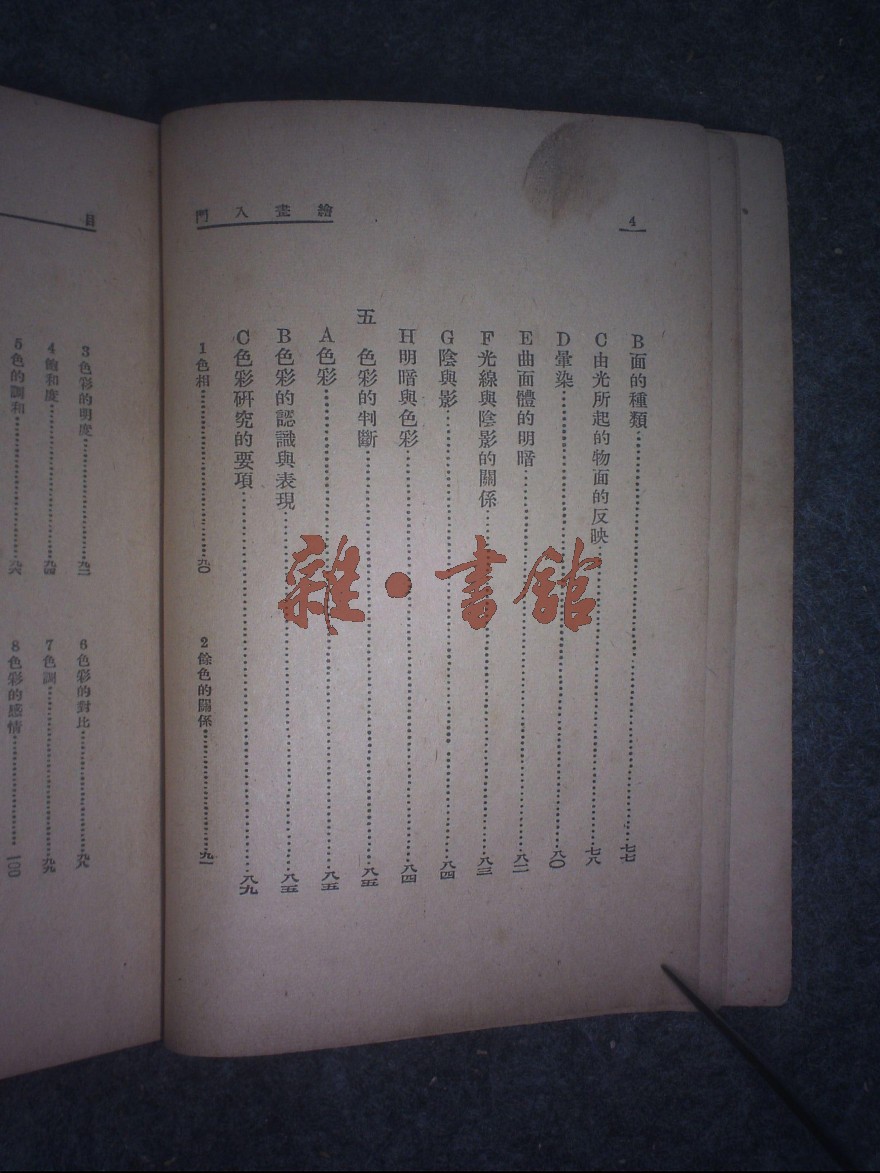 4
繪畫入門
B面的種類…………七七
C由光所起的物面的反映…………七八
D暈染…………八〇
E曲面體的明暗…………八二
F光線與陰影的關係…………八三
G陰與影…………八四
H明暗與色彩…………八四
五 色彩的判斷…………八五
A色彩…………八五
B色彩的認識與表現…………八五
C色彩硏究的要項…………八九
1色相…………九〇 2餘色的關係…………九一
目
3色彩的明度…………九二 6色彩的對比…………九八
4飽和度…………九四 7色調…………九九
5色的調和…………九六 8色彩的感情…………一〇〇
雜·書館